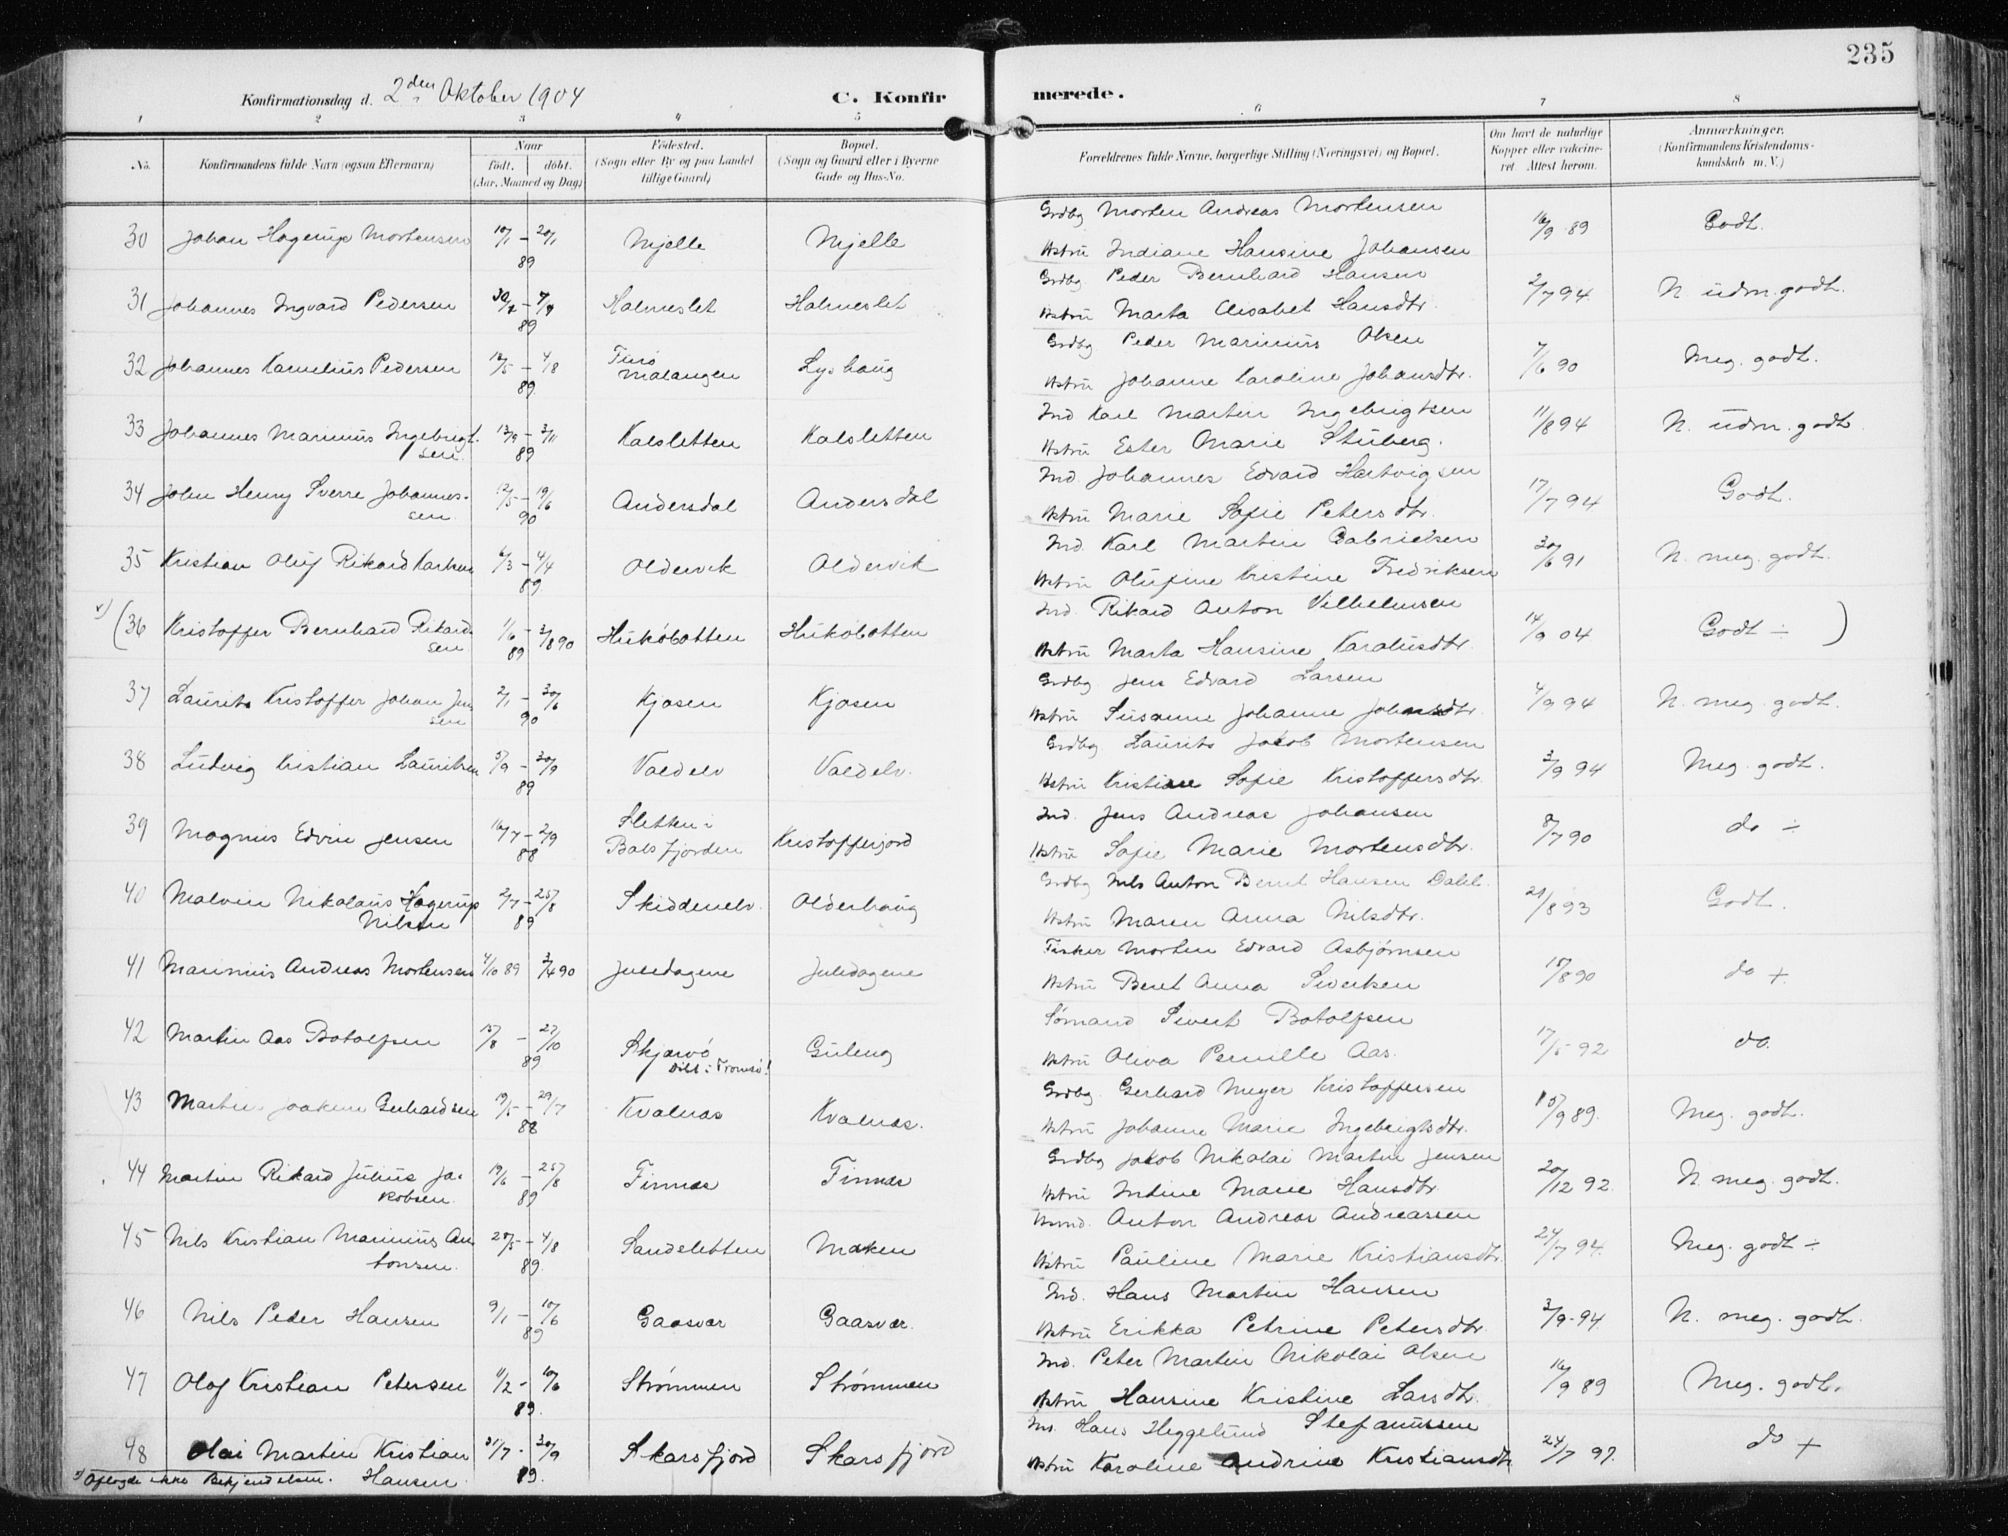 235
Konfirmationsdag d. 2den Oktober 1904 C. Konfirmerede.
1 2 3 4 5 6 7 8
No. Konfirmandens fulde Navn (ogsaa Efternavn) Naar født. døbt. (Aar, Maaned og Dag) Fødested. (Sogn eller By og paa Landet tillige Gaard) Bopæl. (Sogn og Gaard eller i Byerne Gade og Hus-No. Forældrenes fulde Navne, borgerlige Stilling (Næringsvei) og Bopæl. Om havt de naturlige Kopper eller vakcineret Attest herom. Anmærkninger. (Konfirmandens Kristendomskundskab m. V.)
30 Johan Hagerup Mortensen 10/1 – 20/1 89 Mjelle Mjelle Grdbg Morten Andreas Mortensen
Hstru Indiane Hansine Johansen 16/9 89 Godt.
31 Johannes Ingvard Pedersen 89 Halmeslet Halmeslet Grdbg Peder Bernhard Hansen
Hstru Marta Elisabet Hansdtr. 2/7 94 N. udm. godt.
32 Johannes Kornelius Pedersen 12/5 – 4/8 89 Malangen Lyshaug Grdbg Peder Marinius Olsen
Hstru Johanne Karoline Johansdtr. 7/6 90 Meg. godt.
33 Johannes Marinius Ingebrigtsen. 13/9 – 3/11 89 Kalsletten Kalsletten Ind Karl Martin Ingebrigtsen
Hstru Ester Marie Stuberg. 11/8 94 N. udm. godt
34 John Henry Sverre Johannessen. 12/5 – 19/6 90 Andersdal Andersdal Ind. Johannes Edvard Hartvigsen
Hstru Marie Sofie Petersdtr. 17/7 94 Godt.
35 Kristian Oluf Rikard Karlsen 6/3 – 4/4 89 Oldervik Oldervik Ind. Karl Martin Gabrielsen
Hstru Olufine Kristine Fredriksen 30/6 91 N. meg. godt.
x) (36 Kristoffer Bernhard Rikardsen 1/6 89 – 3/8 90 Hukøbotten Hukøbotten Ind. Rikard Anton Vilhelmsen
Hstru Marta Hansine Karolusdtr. 14/9 04 Godt ÷ )
37 Laurits Kristoffer Johan Jensen 2/1 – 30/6 90 Kjosen Kjosen Grdbg. Jens Edvard Larsen
Hstru Susanne Johanne Johansdtr. 4/9 94 N. meg. godt.
38 Ludvig Kristian Lauritsen 5/9 – 30/9 89 Valdelv Valdelv. Grdbg Laurits Jakob Mortensen
Hstru Kristine Sofie Kristoffersdtr. 3/9 94 Meg. godt.
39 Magnus Edvin Jensen 16/7 – 2/9 88 Sletten i Balsfjorden Kristofferjord Ind. Jens Andreas Johansen
Hstru Sofie Marie Mortensdtr. 8/7 90 do ÷
40 Malvin Nikolaus Hagerup Nilsen 2/7 – 25/8 89 Skiddenelv. Olderhaug Grdbg Nils Anton Bernt Hansen Dahl.
Hstru Maren Anna Nilsdtr. 29/8 93 Godt.
41 Marinius Andreas Mortensen 4/10 89 3/4 90 Juledagene Juledagene Fisker Morten Edvard Asbjørnsen
Hstru Beret Anna Sivertsen 15/8 90 do +
42 Martin Aas Botolfsen 15/8 – 27/10 89 Skjærvø Døbt i Tromsø! Guleng Sømand Sivert Botolfsen
Hstru Oliva Pernille Aas. 17/5 92 do.
43 Martin Joakim Gerhardsen 19/5 – 29/7 88 Kvalnæs Kvalnæs. Grdbg. Gerhard Meyer Kristoffersen
Hstru Johanne Marie Ingebrigtsdtr. 15/9 89. Meg. godt.
44 Martin Rikard Julius Jakobsen. 19/6 – 25/8 89 Finnæs Finnæs Grdbg Jakob Nikolai Martin Jensen
Hstru Indine Marie Hansdtr. 20/12 92. N. meg. godt.
45 Nils Kristian Marinius Antonsen. 28/5 – 4/8 89. Sandsletten Moken Anton Andreas Andreassen
Hstru Pauline Marie Kristiansdtr. 27/7 94. Meg. godt ÷
46 Nils Peder Hansen 9/1 – 10/6 89 Gaasvær Gaasvær. Ind. Hans Martin Hansen
Hstru Erikka Petrine Petersdtr. 3/9. 94. N. meg. godt.
47 Olaf Kristian Petersen 11/2 – 10/6 89. Strømmen Strømmen Ind. Peter Martin Nikolai Olsen
Hstru Hansine Kristine Larsdtr. 16/9 89 Meg. godt.
48 Olai Martin Kristian Hansen. 31/7 – 30/9 89. Skarsfjord Skarsfjord Hans Heggelund Stefanussen
Hstru Karoline Andrine Kristiansdtr 24/7 97. do +
x) Aflagde ikke Bekjendelsen.